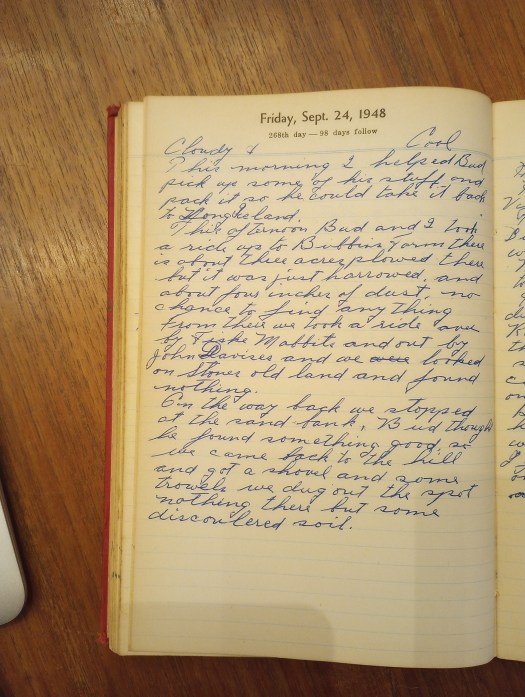 Friday, Sept. 24, 1948
268th day — 98 days follow
Cloudy & Cool
This morning I helped Bud
pick up some of his stuff and
pack it so he could take it back
to Long Island.
This afternoon Bud and I took
a ride up to Bubbins farm there
is about three acres plowed there
but it was just harrowed, and
about four inches of dust, no
chance to find anything
From there we took a ride over
by Fiske Mabbits and out by
John Davises and we looked
on Stones old land and found
nothing.
On the way back we stopped
at the sand bank, Bud thought
he found something good so
we came back to the hill
and got a shovel and some
trowels we dug out the spot
nothing there but some
discoulered soil.